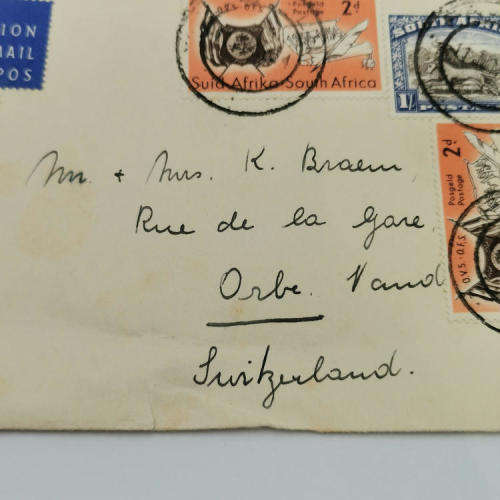 ION
MAIL
POS
O.V.S. O.F.S.
Posgeld
Postage
2d
Suid-Afrika South Africa
SOUTH AFRICA
1/-
2d
Posgeld
Postage
O.V.S. O.F.S.
Mr. + Mrs. K. Braem,
Rue de la Gare.
Orbe. Vaud
Switzerland.